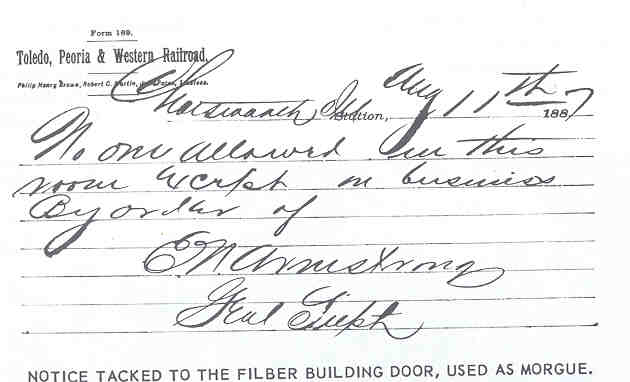 Form 189.
Toledo, Peoria & Western Railroad.
Philip Henry Brown, Robert C. Martin, Trustees.
Chatsworth, Ill Station, Aug 11th 1887
No one allowed in this
room except on business
By order of
EN Armstrong
Genl Supt
NOTICE TACKED TO THE FILBER BUILDING DOOR, USED AS MORGUE.